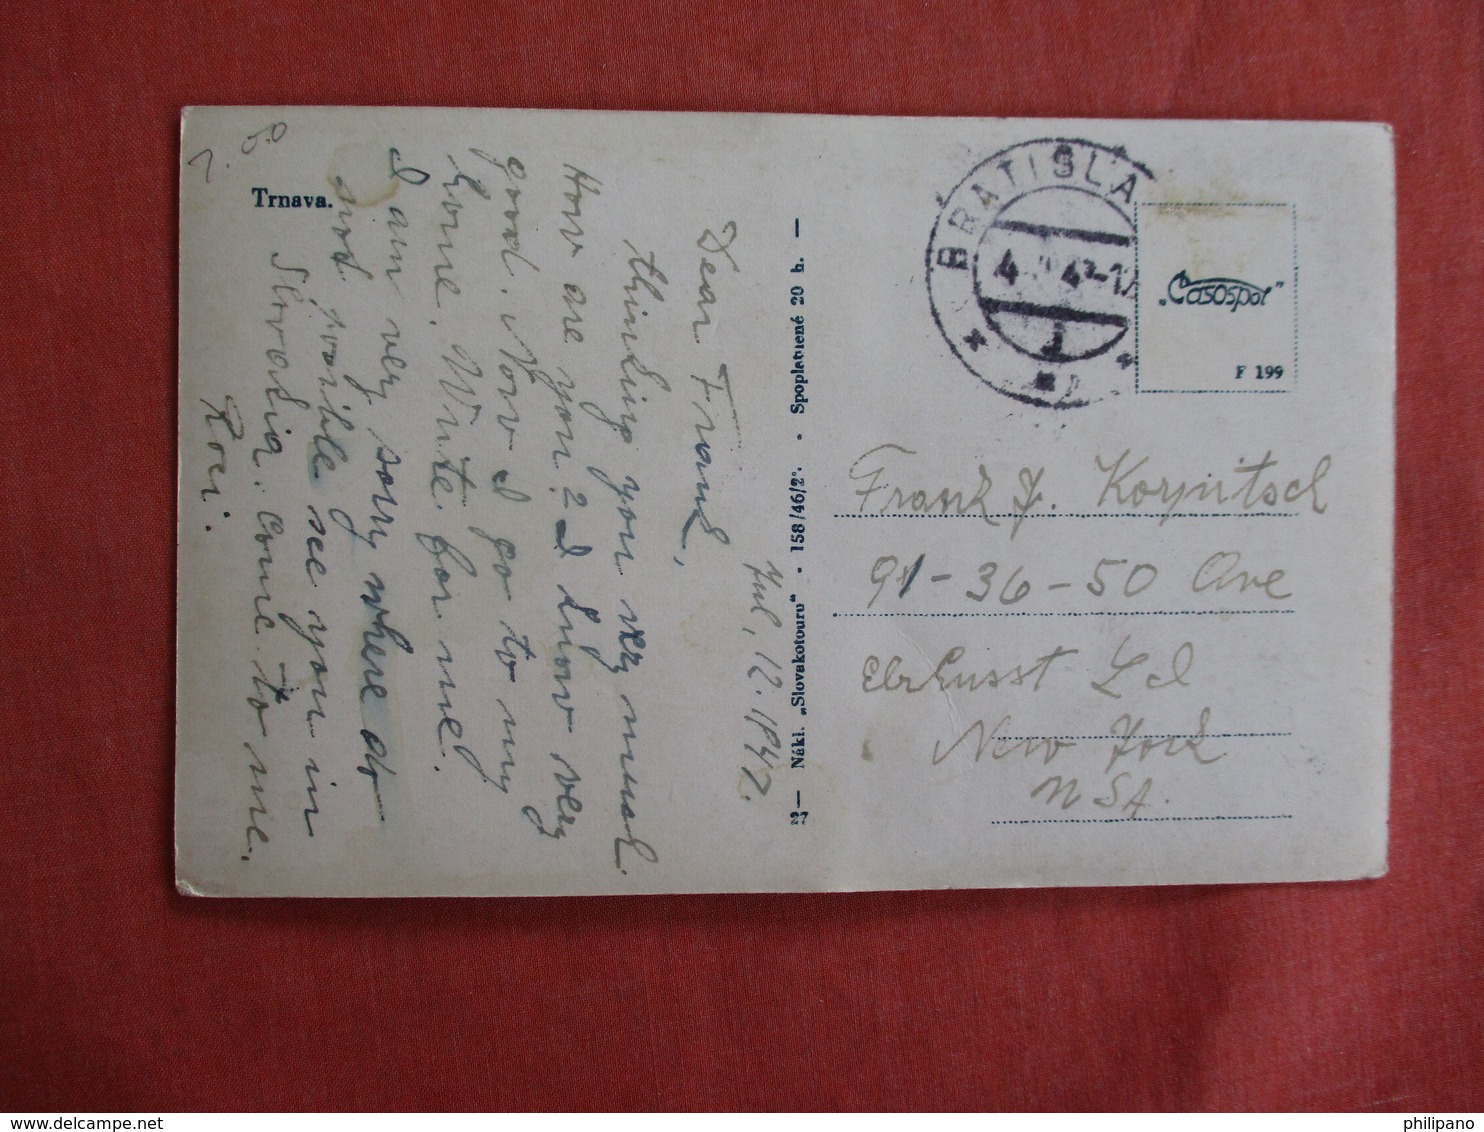 7.50
Trnava.
Jul, 12. 1947.
Dear Frank,
thinking you very much.
How are you? I know very
good. Now I go to my
home. Write for me.
I am very sorry where do
not posible see you in
Slovakia. Come to me.
Roni.
27 — Nákl. „Slovakotouru“ - 158/46/2°. - Spoplatnené 20 h. —
BRATISLA
4 47-17
1
„Časospol“
F 199
Frank J. Korpitsch
91-36-50 Ave
New York
USA.
philipano